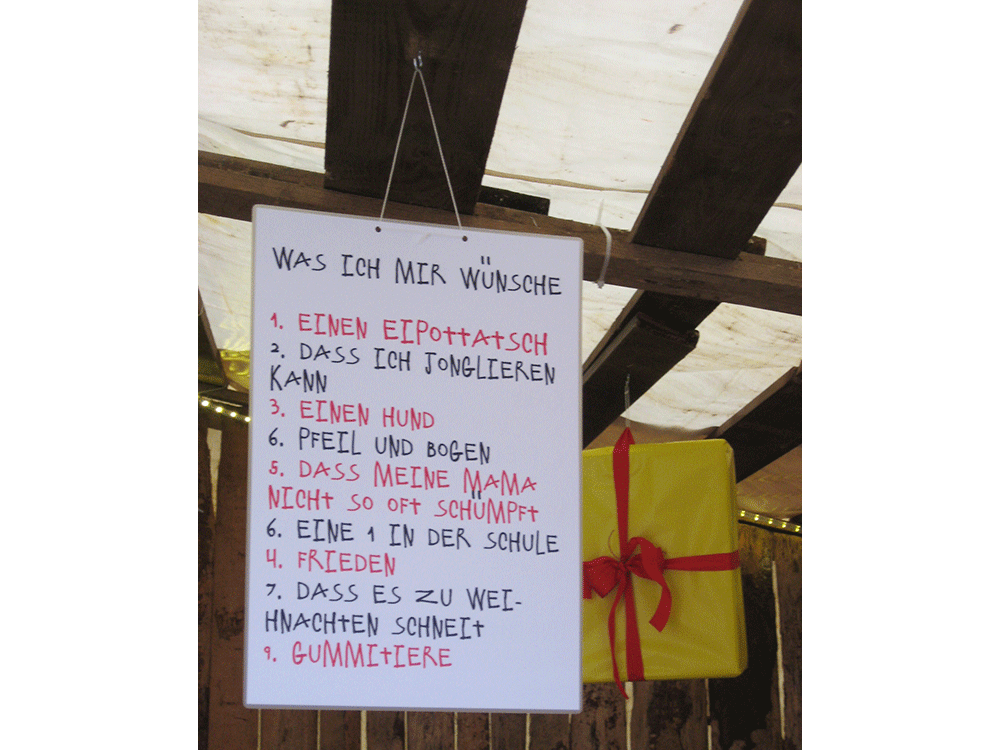 WAS ICH MIR WÜNSCHE
1. EINEN EIPOTTATSCH
2. DASS ICH JONGLIEREN
KANN
3. EINEN HUND
6. PFEIL UND BOGEN
5. DASS MEINE MAMA
NICHT SO OFT SCHÜMPFT
6. EINE 1 IN DER SCHULE
4. FRIEDEN
7. DASS ES ZU WEI-
HNACHTEN SCHNEIT
9. GUMMITIERE